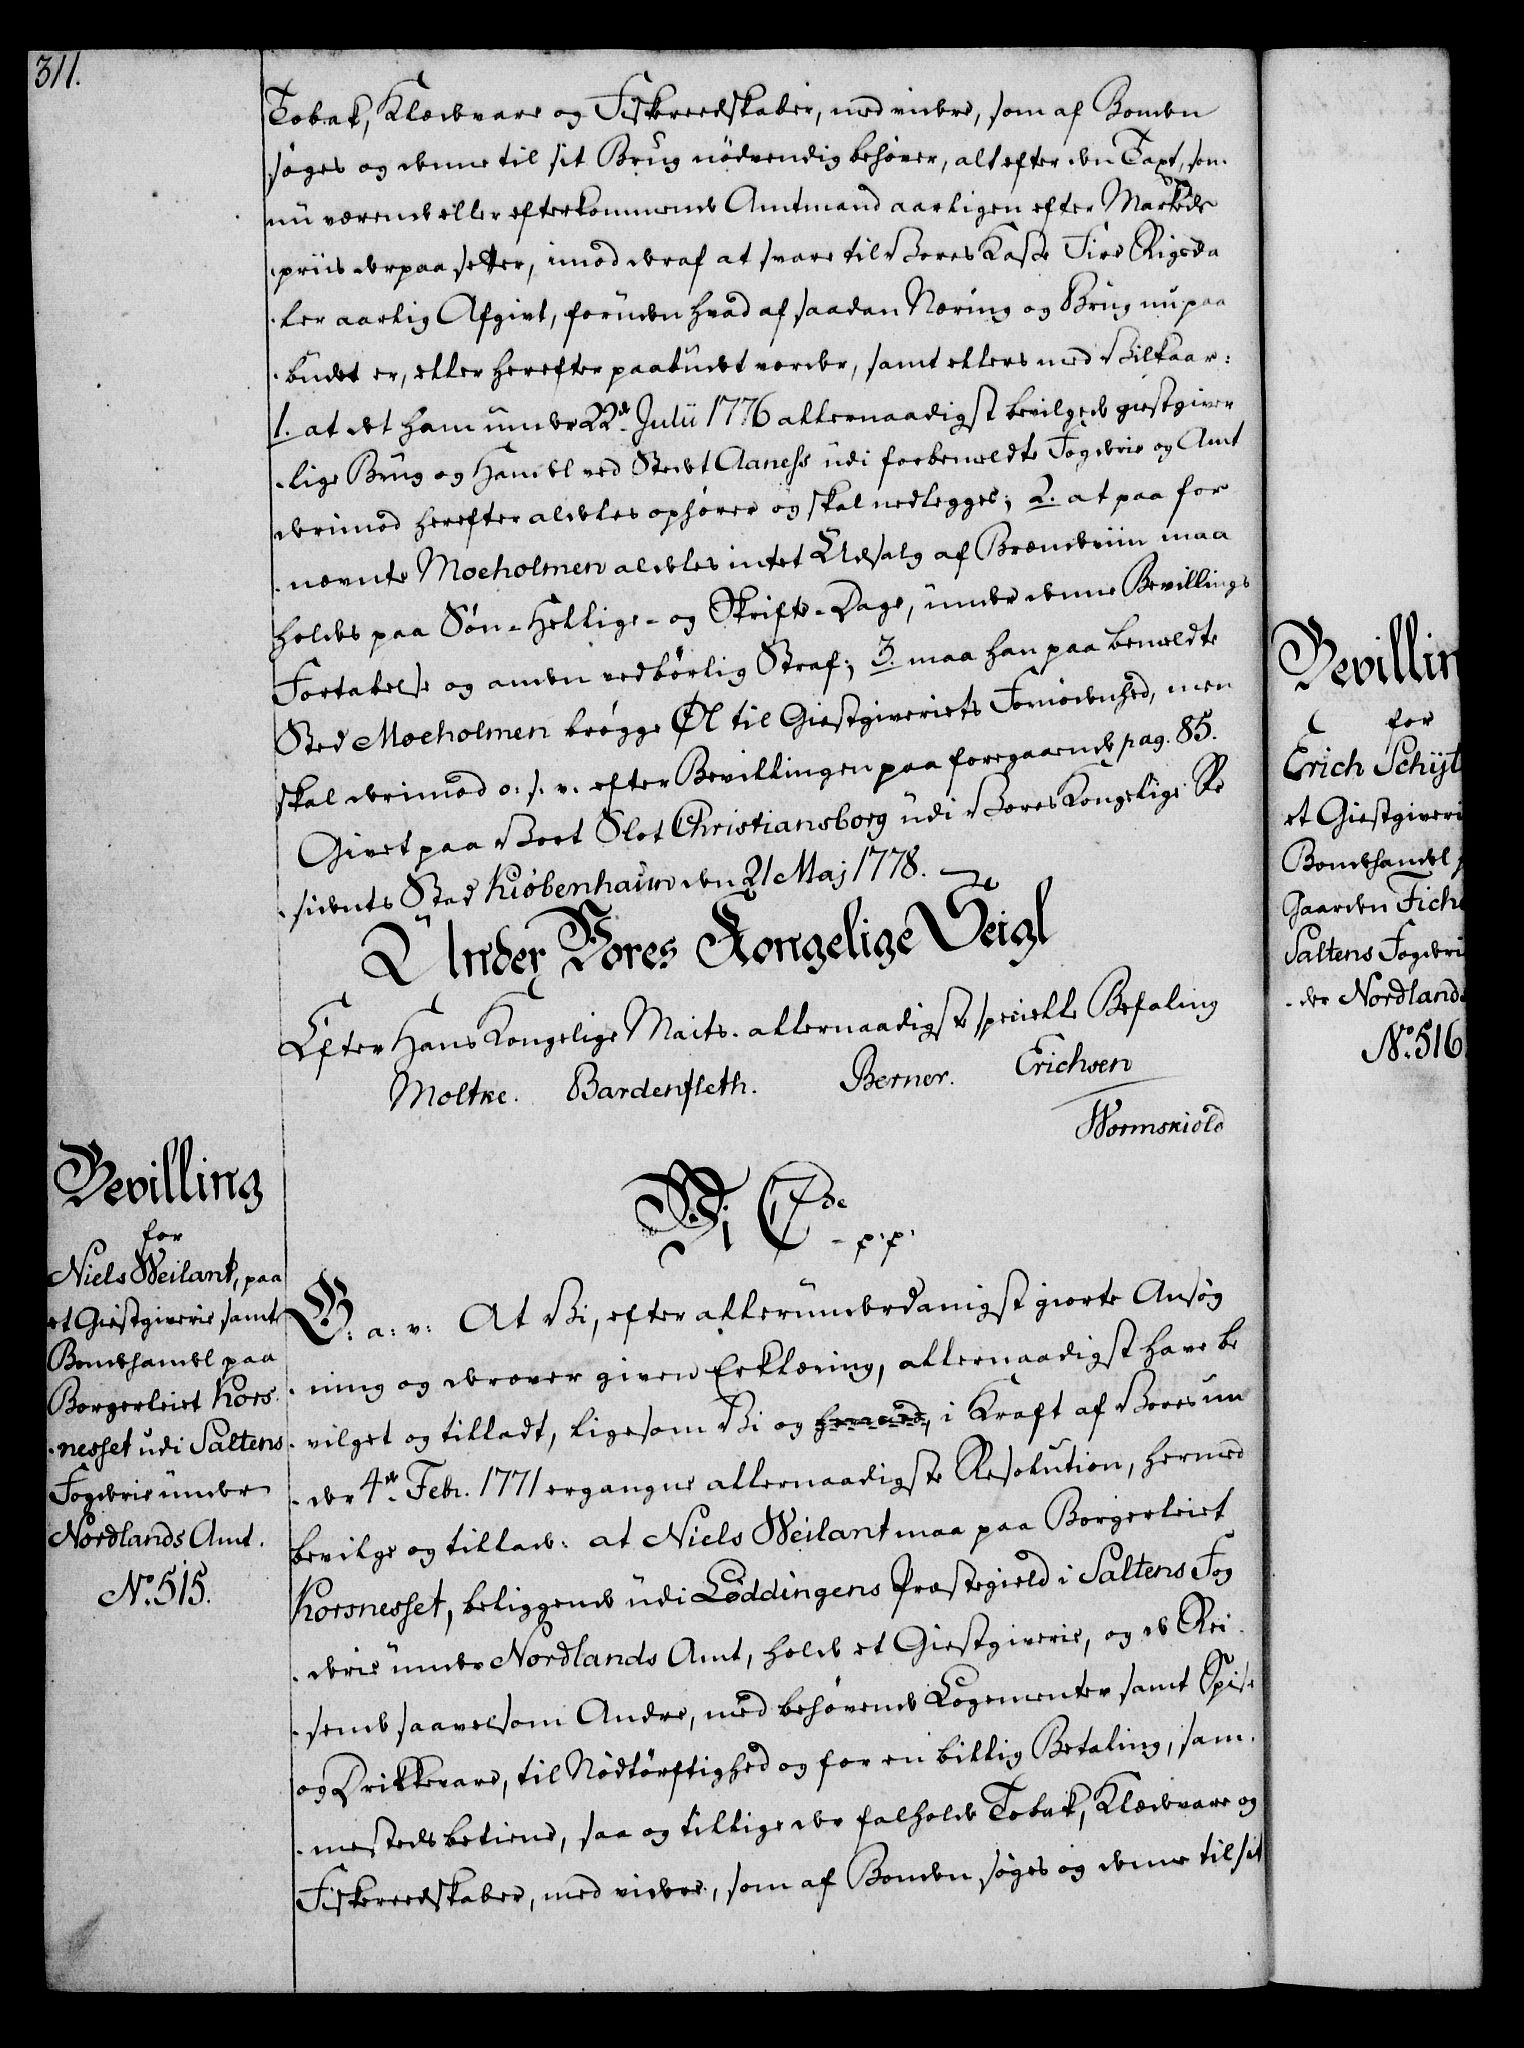 311.
Tobak, Klædevare og Fiskereedskaber, med videre, som af Bonden
søges og denne til sit Brug nödvendig behøver, alt efter den Taxt, som
nu værende eller efterkommende Amtmand aarligen efter Markeds
priis derpaa setter, imod deraf at svare til Vores Kasse Fire Rigsda
ler aarlig Afgivt, foruden hvad af saadan Næring og Brug nu paa
budet er, eller herefter paabudet vorder, samt ellers med Vilkaar:
1. at det ham under 22de Julii 1776 allernaadigst bevilgede giestgiver
lige Brug og Handel ved Stedet Aaness udi forbemeldte Fogderie og Amt
derimod herefter aldeles ophører og skal nedlegges; 2. at paa for
nævnte Moeholmen aldeles intet Udsalg af Brændeviin maa
holdes paa Søn- Hellige- og Skrifte-Dage, under denne Bevillings
Fortabelse og anden vedbørlig Straf; 3. maa han paa bemeldte
Sted Moeholmen brøgge Øl til Giestgiveriets Fornødenhed, men
skal derimod o. s. v. efter Bevillingen paa foregaaende pag. 85.
Givet paa Vort Slot Christiansborg udi Vores Kongelige Re
sidents Stad Kiöbenhaun den 21 Maj 1778.
Under Vores Kongelige Seigl
Efter Hans Kongelige Maits. allernaadigste specielle Befaling
Moltke. Bardenfleth. Berner. Erichsen
Wormskiold
Bevilling
for
Niels Weilant, paa
et Giestgiverie samt
Bondehandel paa
Borgerleiet Kors
nesset udi Saltens
Fogderie under
Nordlands Amt.
No. 515.
Vi C 7de
p: p:
G: a: v: At Vi, efter allerunderdanigst giorte Ansøg
ning og derover given Erklæring, allernaadigst have be
vilget og tilladt, ligesom Vi og hermed, i Kraft af Vores un
der 4de Febr. 1771 ergangne allernaadigste Resolution, hermed
bevilge og tillade: at Niels Weilant maa paa Borgerleiet
Korsnesset, beliggende udi Löddingens Præstegield i Saltens Fog
derie under Nordlands Amt, holde et Giestgiverie, og de Rei
sende saavelsom Andre, med behøvende Logementer samt Spise
og Drikkevare, til Nödtörftighed og for en billig Betaling, sam
mesteds betiene, saa og tillige der falholde Tobak, Klædevare og
Fiskereedskaber, med videre, som af Bonden søges og denne til sit
Bevillin
for
Erich Schiyt
et Giestgiveri
Bondehandel p
Gaarden Fich
Saltens Fogderi
der Nordland
No. 516.